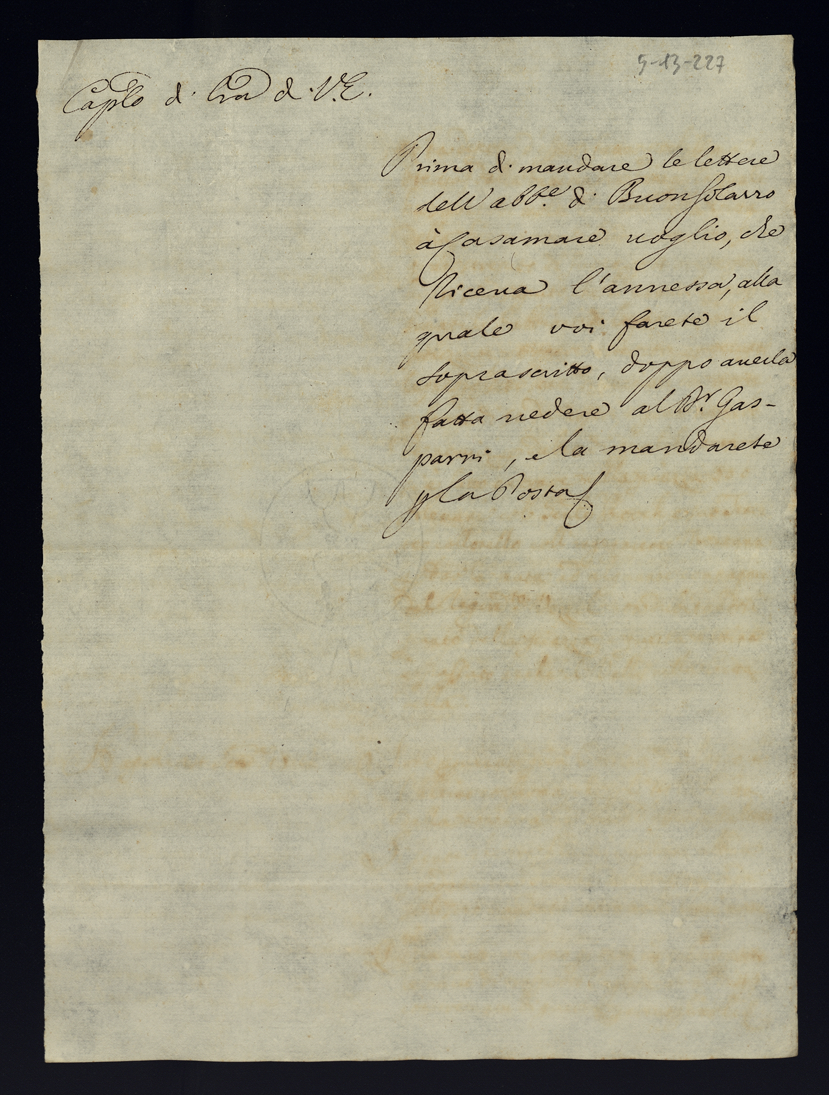 5-13-227
Caplo d. Lra d. V.E.
Prima d. mandare le lettere
dell'abb.e d. Buonsolazzo
à Casamare voglio, che
riceva l'annessa, alla
quale voi farete il
soprascritto, doppo averla
fatta vedere al Dr. Gas-
parri, e la mandarete
p la Posta